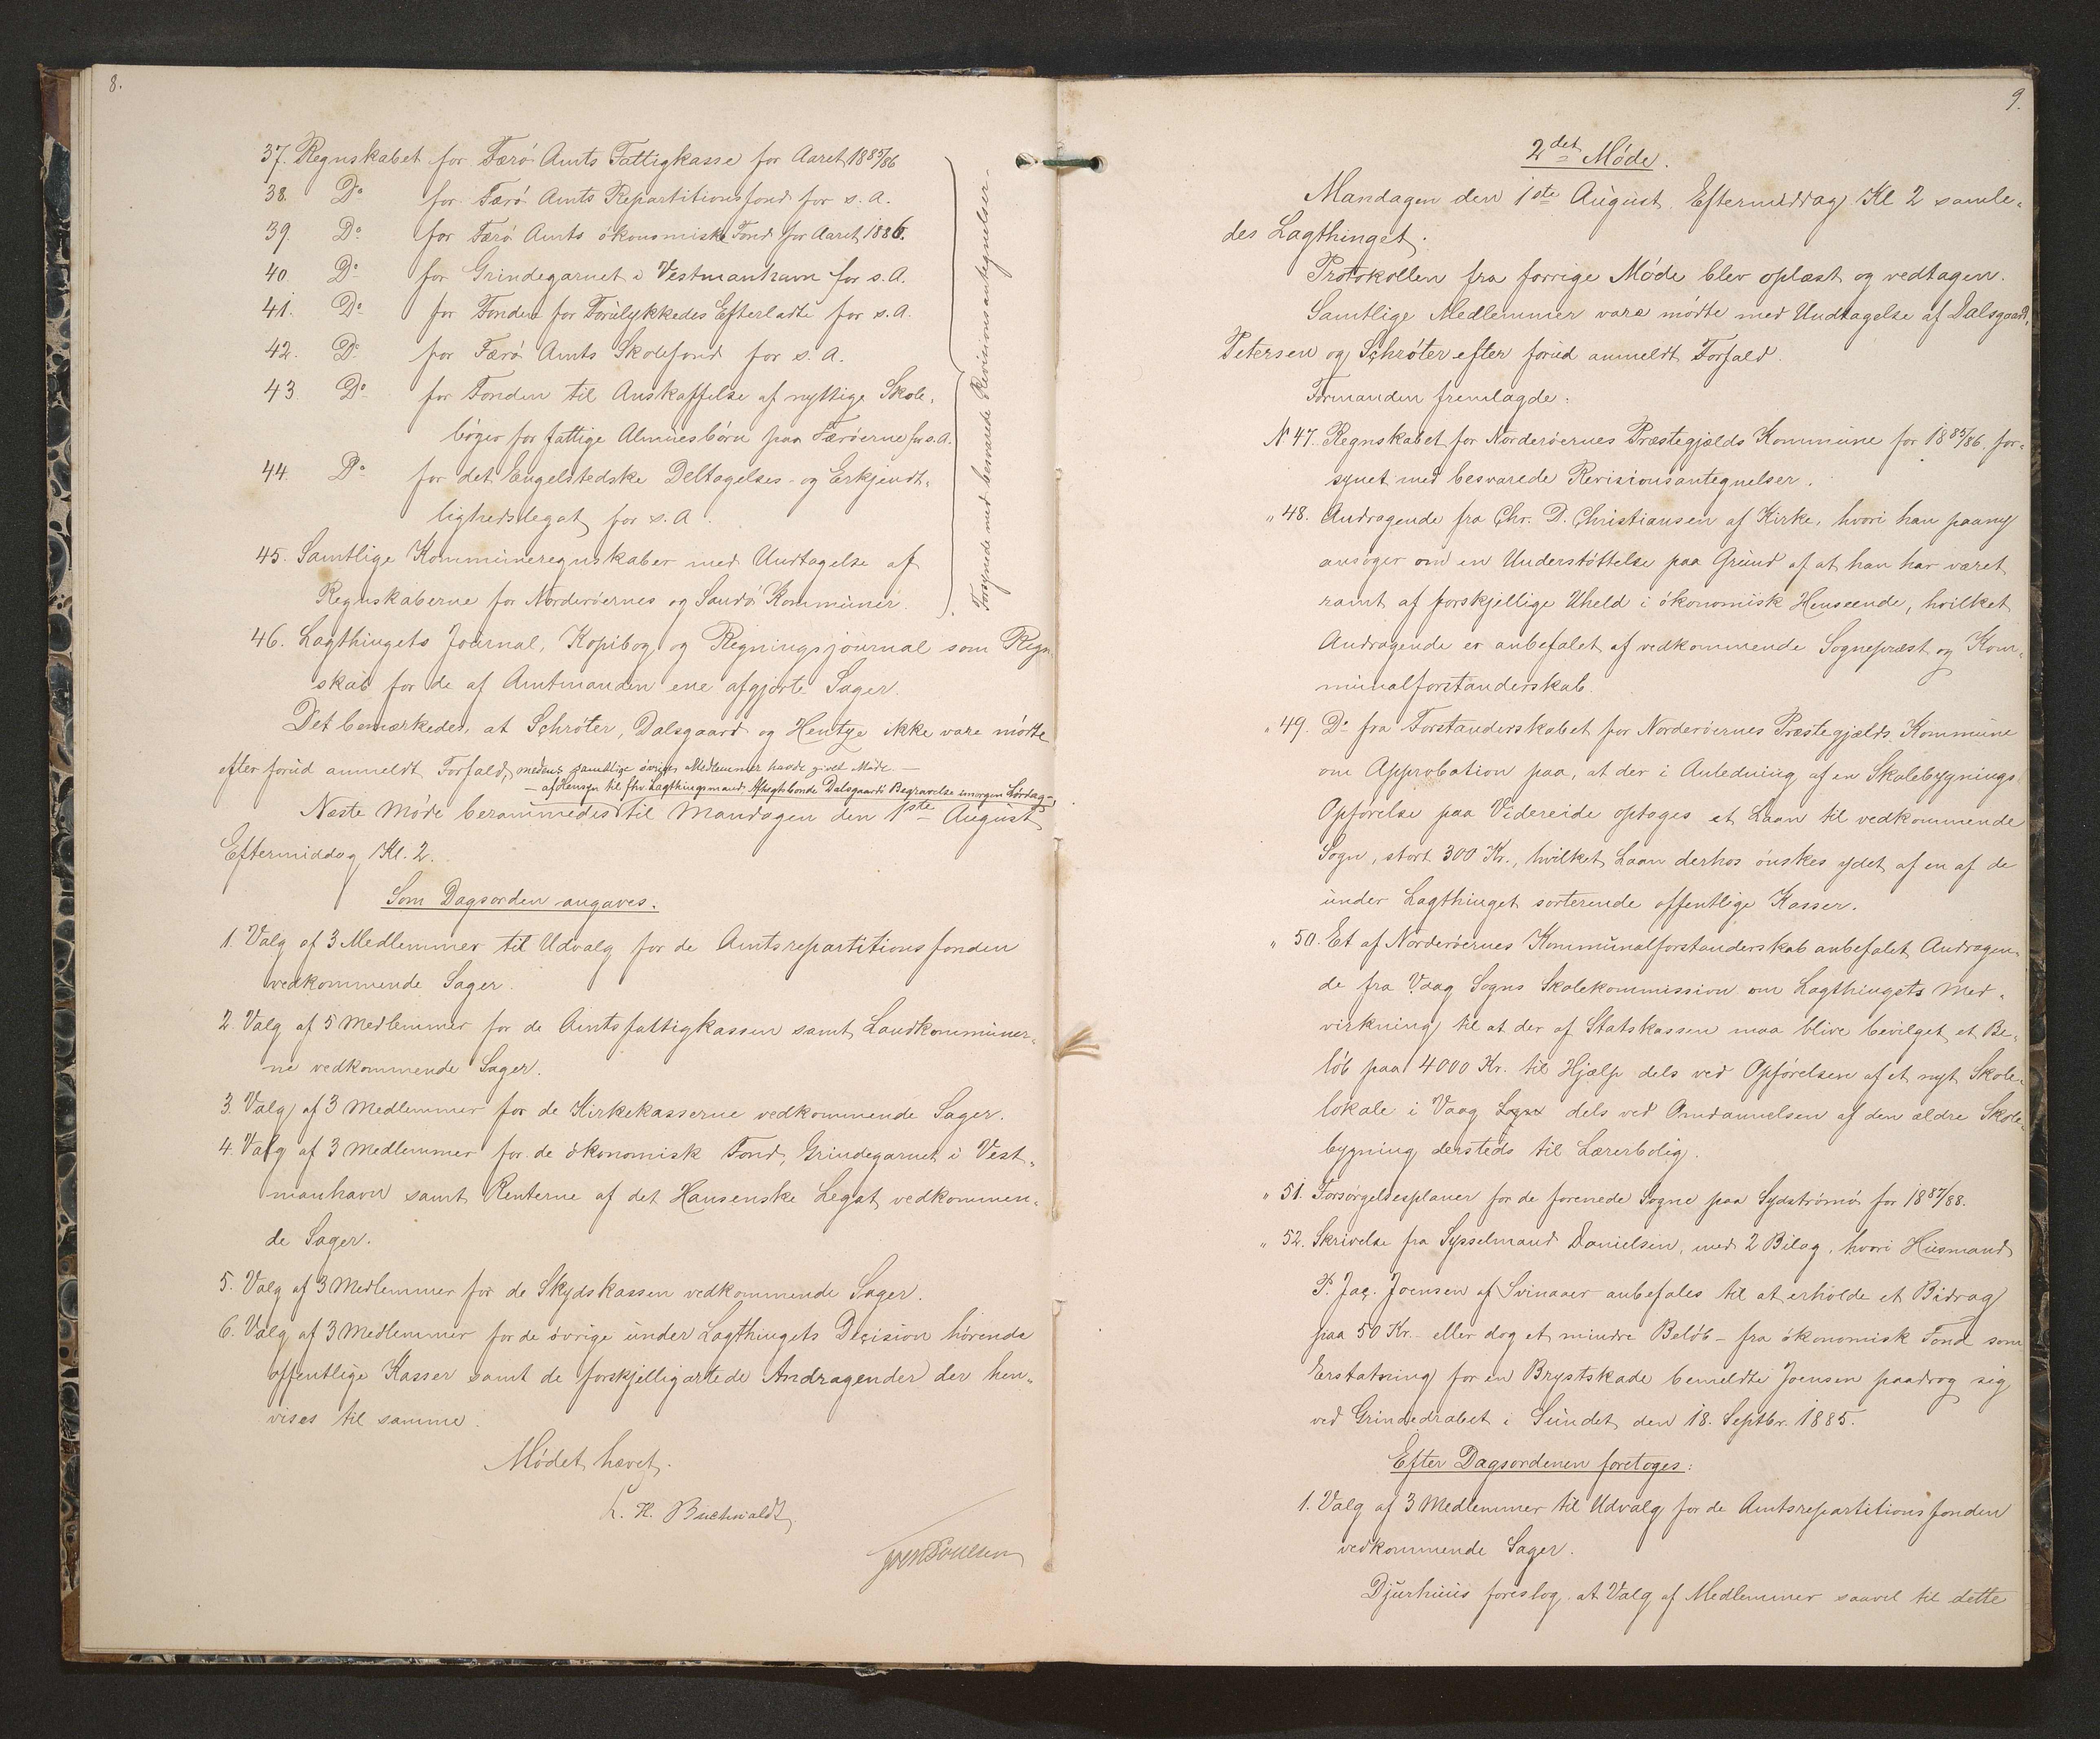 8.
37. Regnskabet for Færö Amts Fattigkasse for Aaret 1885/86
38. Do for Færö Amts Repartitionsfond for s. A.
39. Do for Færö Amts økonomiske Fond for Aaret 1886.
40. Do for Grindegarnet i Vestmanhavn for s. A.
41. Do for Fonden for Forulykkedes Efterladte for s. A.
42. Do for Færö Amts Skolefond for s. A.
43. Do for Fonden til Anskaffelse af nyttige Skole-
bøger for fattige Almuesbörn paa Færöerne for s. A.
44. Do for det Engelstedske Deltagelses- og Erkjendt-
lighedslegat for s. A.
45. Samtlige Kommuneregnskaber med Undtagelse af
Regnskaberne for Norderöernes og Sandö Kommuner.
Forsynede med besvarede Revisionsantegnelser.
46. Lagthingets Journal, Kopibog og Regningsjournal som Regn-
skab for de af Amtmanden ene afgjorte Sager.
Det bemærkedes, at Schröter, Dalsgaard og Hentze ikke vare mödte
efter forud anmeldt Forfald, medens samtlige övrige Medlemmer havde givet Möde. —
— af Hensyn til fhv. Lagthingsmand, Dalsgaards Begravelse imorgen Lördag —
Næste Möde berammedes til Mandagen den 1ste August
Eftermiddag Kl. 2.
Som Dagsorden angaves.
1. Valg af 3 Medlemmer til Udvalg for de Amtsrepartitionsfonden
vedkommende Sager.
2. Valg af 5 Medlemmer for de Amtsfattigkassen samt Landkommuner-
ne vedkommende Sager.
3. Valg af 3 Medlemmer for de Kirkekasserne vedkommende Sager.
4. Valg af 3 Medlemmer for de ökonomisk Fond, Grindegarnet i Vest-
manhavn samt Renterne af det Hansenske Legat vedkommen-
de Sager.
5. Valg af 3 Medlemmer for de Skydskassen vedkommende Sager.
6. Valg af 3 Medlemmer for de övrige under Lagthingets Decision hörende
offentlige Kasser samt de forskjelligartede Andragender der hen-
vises til samme.
Mödet hævet.
C. H. Buchwaldt
Joen Poulsen
9.
2det Möde.
Mandagen den 1ste August Eftermiddag Kl 2 samle-
des Lagthinget.
Protokollen fra forrige Möde blev oplæst og vedtagen.
Samtlige Medlemmer vare mödte med Undtagelse af Dalsgaard,
Petersen og Schröter efter forud anmeldt Forfald.
Formanden fremlagde:
N 47. Regnskabet for Norderöernes Præstegjælds Kommune for 1885/86, for-
synet med besvarede Revisionsantegnelser.
" 48. Andragende fra Chr. D. Christiansen af Kirke, hvori han paany
ansöger om en Understöttelse paa Grund af at han har været
ramt af forskjellige Uheld i ökonomisk Henseende, hvilket
Andragende er anbefalet af vedkommende Sognepræst og Kom-
munalforstanderskab.
" 49. Do fra Forstanderskabet for Norderöernes Præstegjælds Kommune
om Approbation paa, at der i Anledning af en Skolebygnings
Opförelse paa Videreide optages et Laan til vedkommende
Sogn, stort 300 Kr., hvilket Laan derhos önskes ydet af en af de
under Lagthinget sorterende offentlige Kasser.
" 50. Et af Norderöernes Kommunalforstanderskab anbefalet Andragen-
de fra Vaag Sogns Skolekommission om Lagthingets Med-
virkning til at der af Statskassen maa blive bevilget et Be-
löb paa 4000 Kr. til Hjælp dels ved Opförelsen af et nyt Skole-
lokale i Vaag Sogn dels ved Omdannelsen af den ældre Skole-
bygning dersteds til Lærerbolig.
" 51. Forsörgelsesplaner for de forenede Sogne paa Sydströmö for 1887/88.
" 52. Skrivelse fra Sysselmand Danielsen, med 2 Bilag, hvori Huusmand
P. Jac. Joensen af Svinaaer anbefales til at erholde et Bidrag
paa 50 Kr. – eller dog et mindre Belöb – fra ökonomisk Fond som
Erstatning for en Brystskade bemeldte Joensen paadrog sig
ved Grindedrabet i Sundet den 18. Septbr. 1885.
Efter Dagsordenen foretoges:
1. Valg af 3 Medlemmer til Udvalg for de Amtsrepartitionsfonden
vedkommende Sager.
Djurhuus foreslog, at Valg af Medlemmer saavel til dette